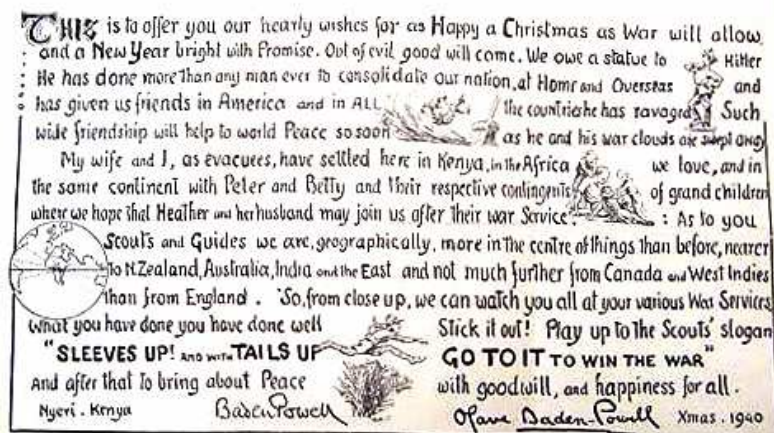 THIS is to offer you our hearty wishes for as Happy a Christmas as War will allow
and a New Year bright with Promise. Out of evil good will come. We owe a statue to Hitler
He has done more than any man ever to consolidate our nation, at Home and Overseas and
has given us friends in America and in ALL the countries he has ravaged Such
wide friendship will help to world Peace so soon as he and his war clouds are swept away
My wife and I, as evacuees, have settled here in Kenya, in the Africa we love, and in
the same continent with Peter and Betty and their respective contingents of grand children
where we hope that Heather and her husband may join us after their war Service. : As to you
Scouts and Guides we are, geographically, more in the centre of things than before, nearer
to N. Zealand, Australia, India and the East and not much further from Canada and West Indies
than from England. So, from close up, we can watch you all at your various War Services
What you have done you have done well Stick it out! Play up to the Scouts' slogan
"SLEEVES UP! AND WITH TAILS UP GO TO IT TO WIN THE WAR"
And after that to bring about Peace with goodwill, and happiness for all.
Nyeri. Kenya Baden Powell Olave Baden-Powell Xmas. 1940